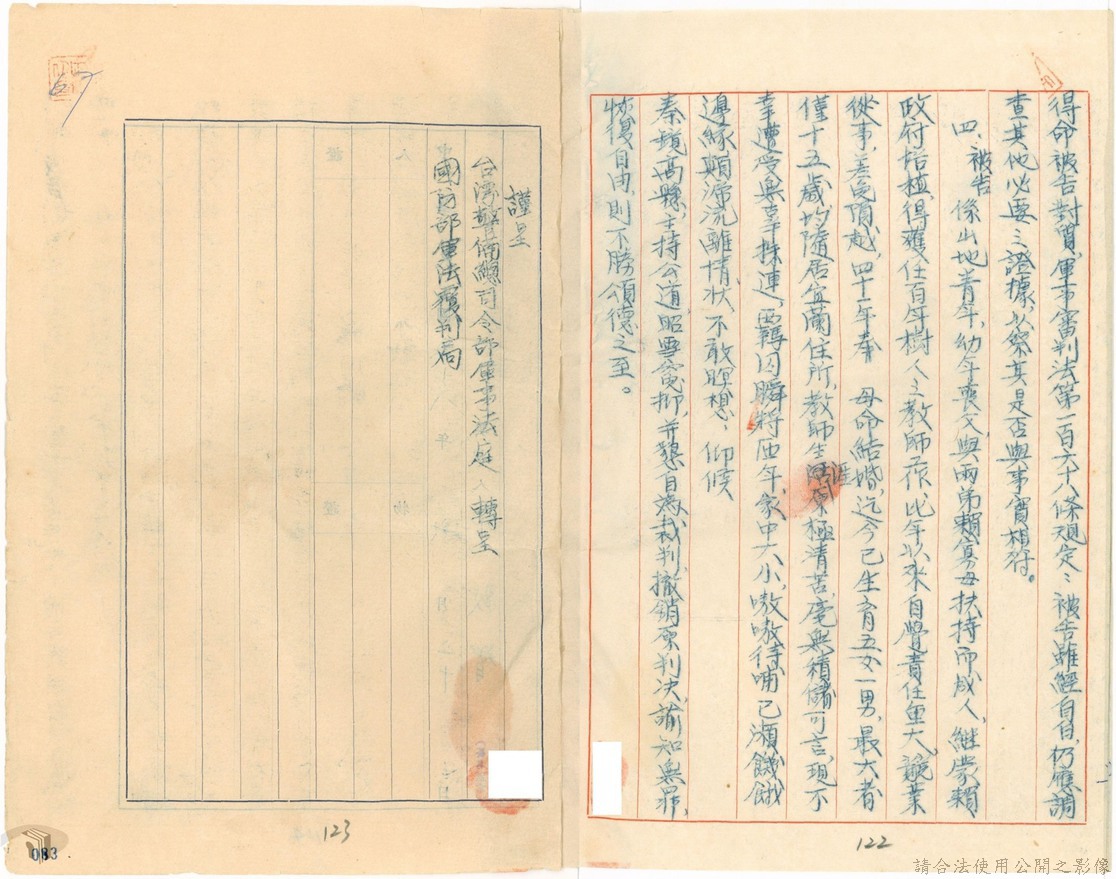 得命被告對質，軍事審判法第一百六十八條規定：被告雖經自白，仍應調
查其他必要之證據，以察其是否與事實相符。
四、被告係出地青年，幼年喪父，與兩弟賴寡母扶持而成人，繼蒙賴
政府培植得獲任百年樹人之教師工作，比年以來自覺責任重大，兢業
從事，差免隕越，四十二年奉　母命結婚，迄今已生育五女一男，最大者
僅十五歲，均隨居宜蘭住所，教師生涯原極清苦，毫無積儲可言，現不
幸遭受無辜株連，羈囚瞬將匝年，家中大小，嗷嗷待哺已瀕饑餓
邊緣，顛沛流離情狀，不敢暝想，仰候
秦鏡高縣，主持公道，昭雪寃抑，并懇自為裁判，撤銷原判決，諭知無罪，
恢復自由，則不勝頌德之至。
122
謹呈
台灣警備總司令部軍事法庭　轉呈
國防部軍法覆判局
67
123
083
請合法使用公開之影像